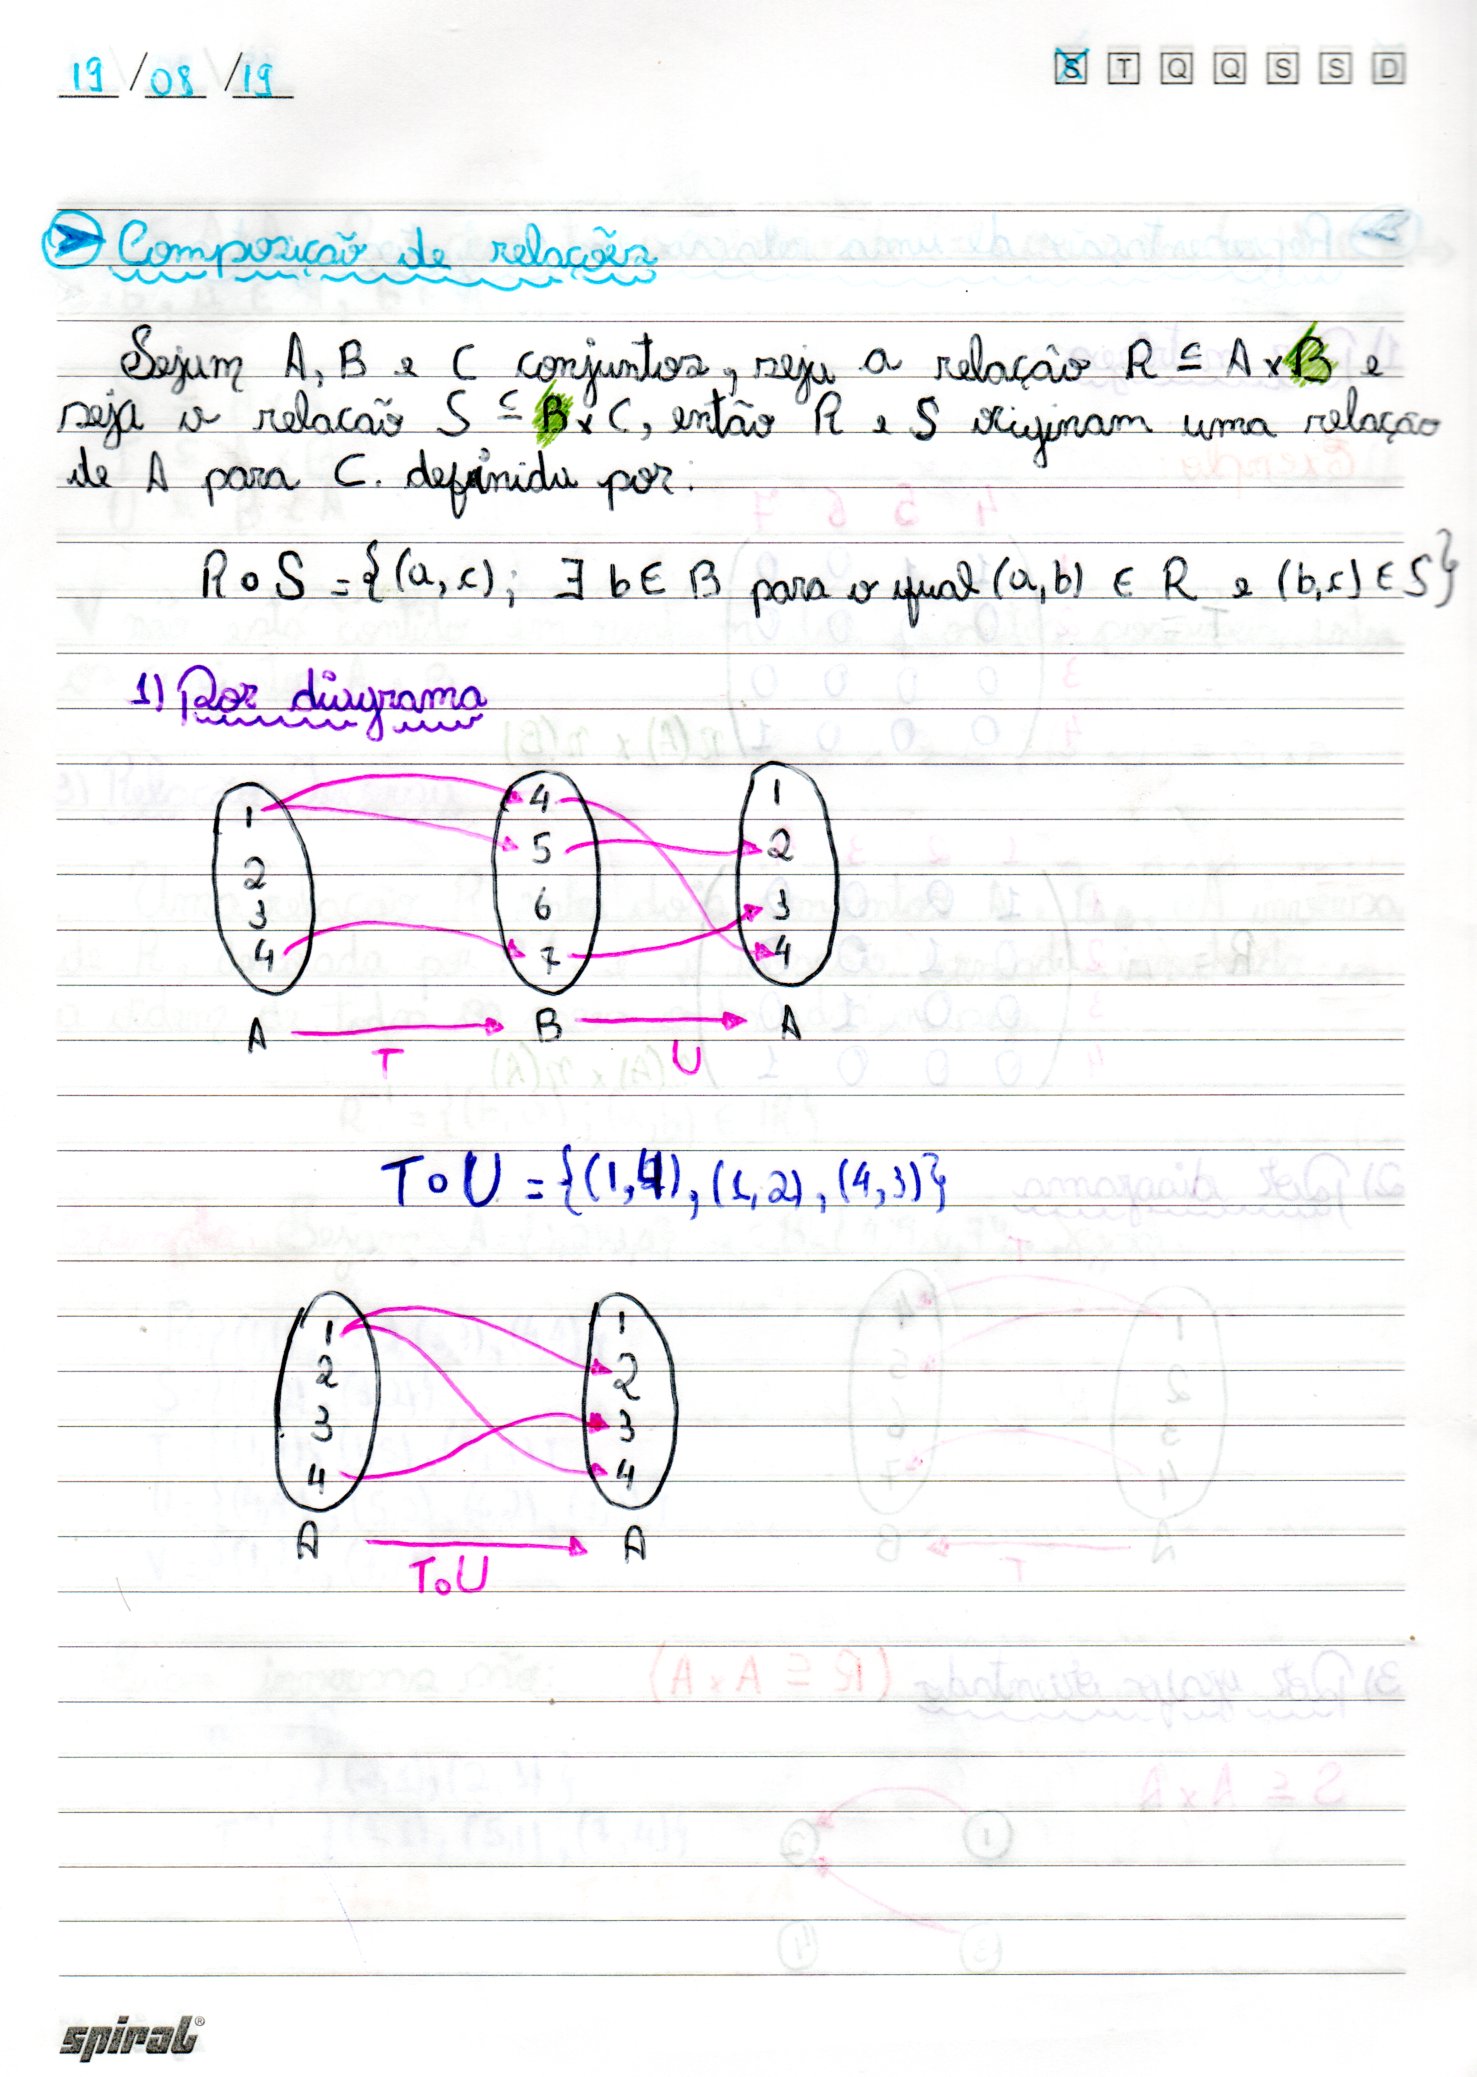 19/08/19 S T Q Q S S D
Composição de relações
Sejam A, B e C conjuntos, seja a relação R ⊆ A×B e
seja a relacão S ⊆ B×C, então R e S originam uma relação
de A para C. definida por:
R∘S = {(a,c); ∃ b ∈ B para o qual (a,b) ∈ R e (b,c) ∈ S}
1) Por diagrama
1 4 1
2 5 2
3 6 3
4 7 4
A B A
T U
T∘U = {(1,4), (1,2), (4,3)}
1 1
2 2
3 3
4 4
A A
T∘U
spiral®